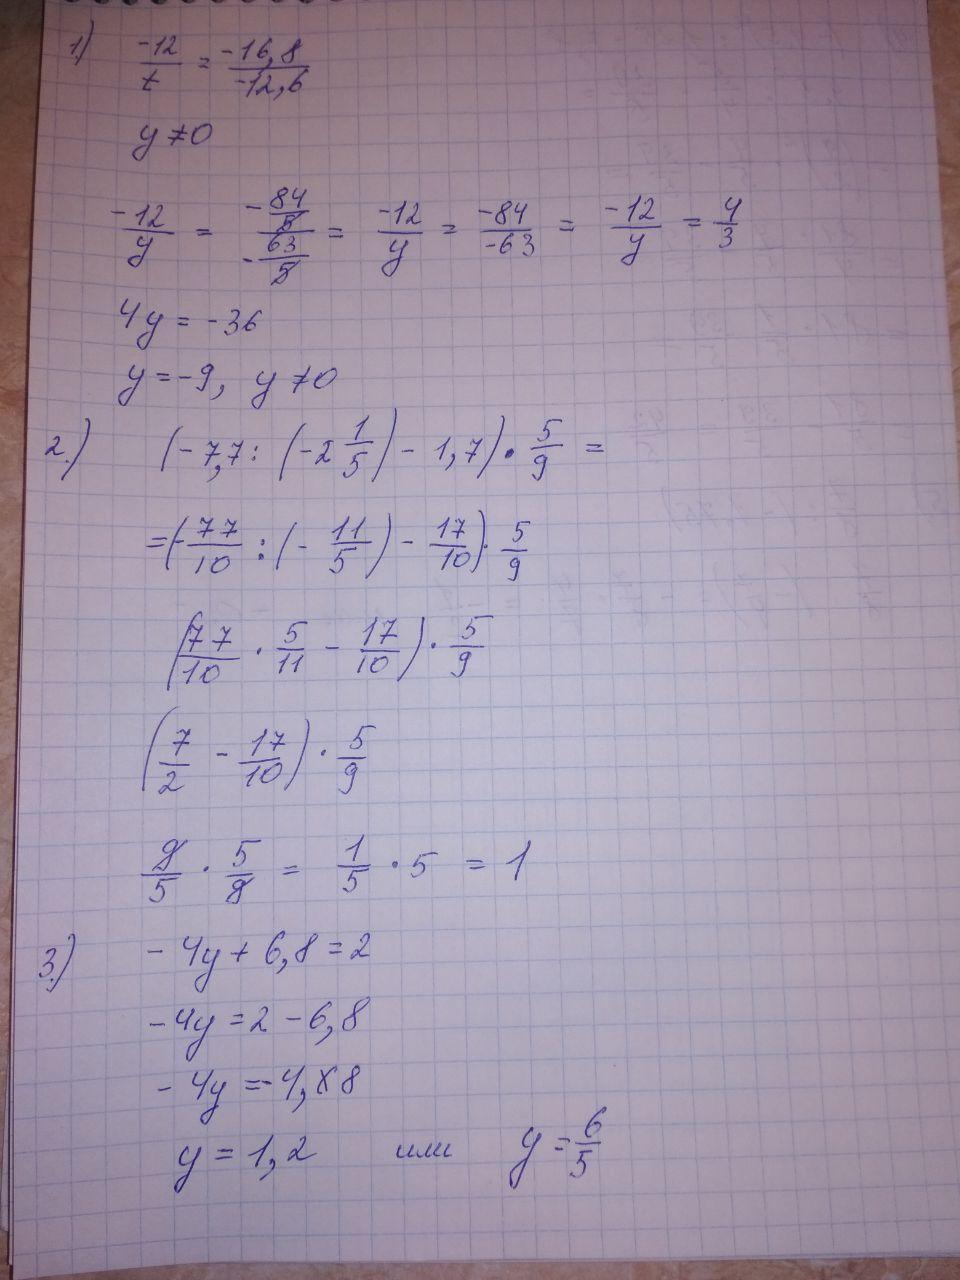 1) -12/t = -16,8/-12,6
y ≠ 0
-12/y = -84/5/-63/5 = -12/y = -84/-63 = -12/y = 4/3
4y = -36
y = -9, y ≠ 0
2.) (-7,7 : (-2 1/5) - 1,7) · 5/9 =
= (-77/10 : (-11/5) - 17/10) · 5/9
(77/10 · 5/11 - 17/10) · 5/9
(7/2 - 17/10) · 5/9
9/5 · 5/9 = 1/5 · 5 = 1
3.) -4y + 6,8 = 2
-4y = 2 - 6,8
-4y = -4,8
y = 1,2 или y = 6/5